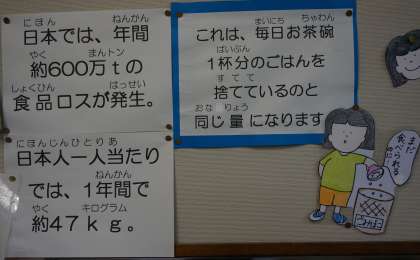 にほん ねんかん
日本では、年間
やく まんトン
約600万tの
しょくひん はっせい
食品ロスが発生。
にほんじんひとりあ
日本人一人当たり
ねんかん
では、1年間で
やく キログラム
約47kg。
まいにち ちゃわん
これは、毎日お茶碗
ぱいぶん
1杯分のごはんを
すてて
捨てているのと
おな りょう
同じ量になります
まだ
食べられる
のに